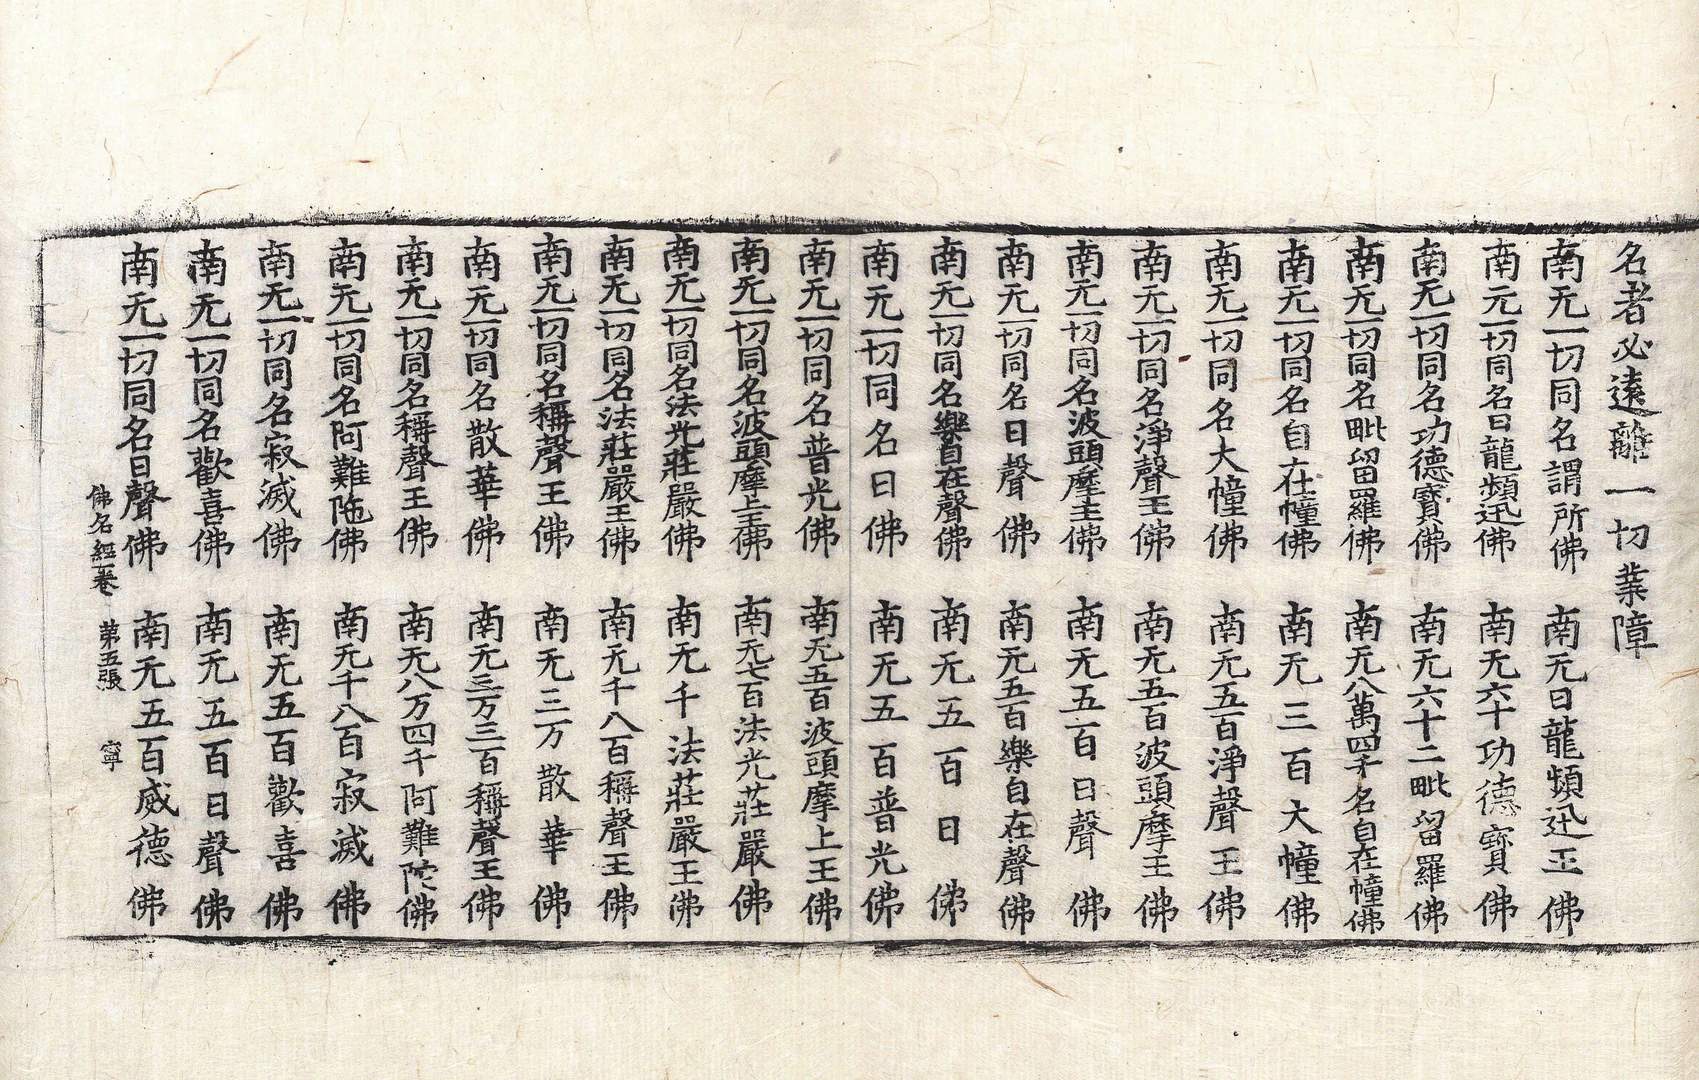 名者必遠離一切業障
南无一切同名謂所佛 南无日龍頻迅王佛
南无一切同名日龍頻迅佛 南无六十功德寶佛
南无一切同名功德寶佛 南无六十二毗留羅佛
南无一切同名毗留羅佛 南无八萬四千名自在幢佛
南无一切同名自在幢佛 南无三百大幢佛
南无一切同名大幢佛 南无五百淨聲王佛
南无一切同名淨聲王佛 南无五百波頭摩王佛
南无一切同名波頭摩王佛 南无五百日聲佛
南无一切同名日聲佛 南无五百樂自在聲佛
南无一切同名樂自在聲佛 南无五百日佛
南无一切同名日佛 南无五百普光佛
南无一切同名普光佛 南无五百波頭摩上王佛
南无一切同名波頭摩上王佛 南无七百法光莊嚴佛
南无一切同名法光莊嚴佛 南无千法莊嚴王佛
南无一切同名法莊嚴王佛 南无千八百稱聲王佛
南无一切同名稱聲王佛 南无三万散華佛
南无一切同名散華佛 南无三万三百稱聲王佛
南无一切同名稱聲王佛 南无八万四千阿難陀佛
南无一切同名阿難陁佛 南无千八百寂滅佛
南无一切同名寂滅佛 南无五百歡喜佛
南无一切同名歡喜佛 南无五百日聲佛
南无一切同名日聲佛 南无五百威德佛
佛名經一卷 第五張 寧